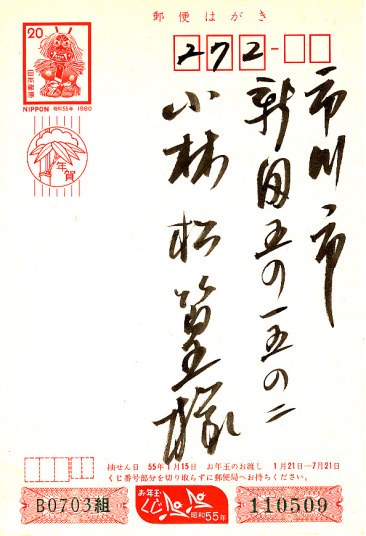 郵便はがき
20
日本郵便
NIPPON 昭和55年 1980
年賀
272-
市川市
新田五の一五の二
小林松篁様
抽せん日 55年1月15日 お年玉のお渡し 1月21日―7月21日
くじ番号部分を切り取らずに郵便局へお持ちください。
B0703組
お年玉
くじ
昭和55年
110509